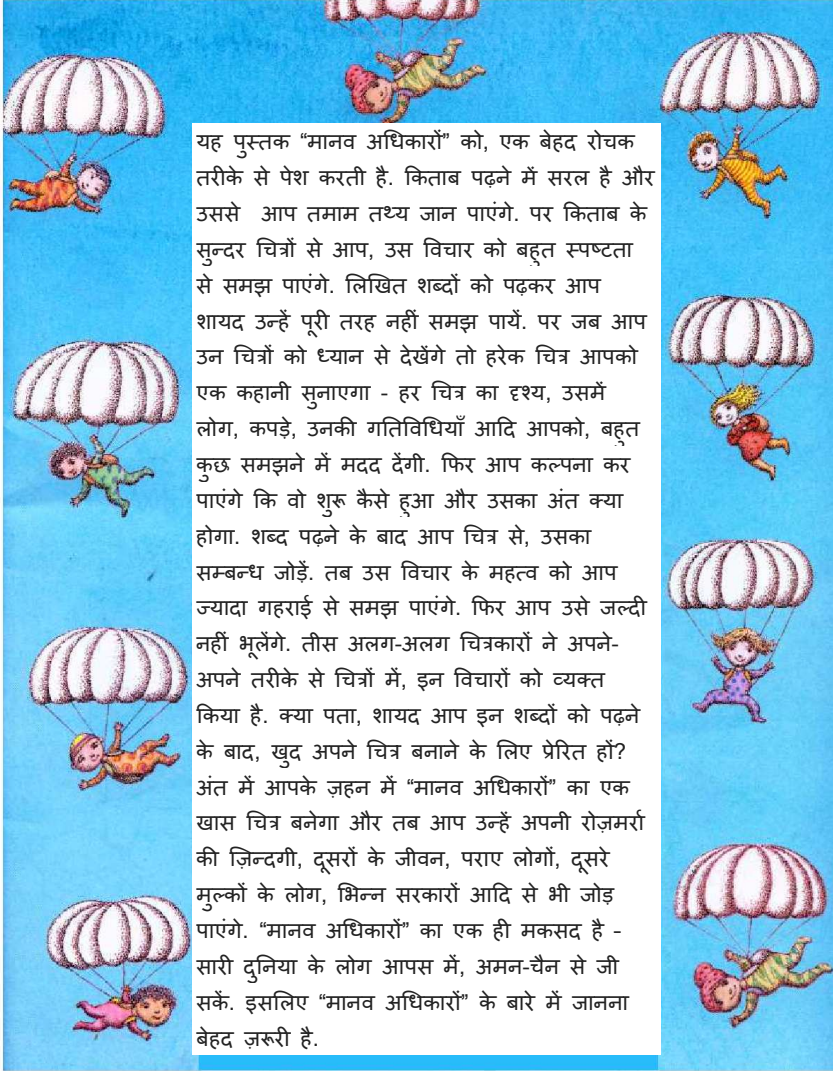 यह पुस्तक “मानव अधिकारों” को, एक बेहद रोचक
तरीके से पेश करती है. किताब पढ़ने में सरल है और
उससे आप तमाम तथ्य जान पाएंगे. पर किताब के
सुन्दर चित्रों से आप, उस विचार को बहुत स्पष्टता
से समझ पाएंगे. लिखित शब्दों को पढ़कर आप
शायद उन्हें पूरी तरह नहीं समझ पायें. पर जब आप
उन चित्रों को ध्यान से देखेंगे तो हरेक चित्र आपको
एक कहानी सुनाएगा - हर चित्र का दृश्य, उसमें
लोग, कपड़े, उनकी गतिविधियाँ आदि आपको, बहुत
कुछ समझने में मदद देंगी. फिर आप कल्पना कर
पाएंगे कि वो शुरू कैसे हुआ और उसका अंत क्या
होगा. शब्द पढ़ने के बाद आप चित्र से, उसका
सम्बन्ध जोड़ें. तब उस विचार के महत्व को आप
ज्यादा गहराई से समझ पाएंगे. फिर आप उसे जल्दी
नहीं भूलेंगे. तीस अलग-अलग चित्रकारों ने अपने-
अपने तरीके से चित्रों में, इन विचारों को व्यक्त
किया है. क्या पता, शायद आप इन शब्दों को पढ़ने
के बाद, खुद अपने चित्र बनाने के लिए प्रेरित हों?
अंत में आपके ज़हन में “मानव अधिकारों” का एक
खास चित्र बनेगा और तब आप उन्हें अपनी रोज़मर्रा
की ज़िन्दगी, दूसरों के जीवन, पराए लोगों, दूसरे
मुल्कों के लोग, भिन्न सरकारों आदि से भी जोड़
पाएंगे. “मानव अधिकारों” का एक ही मकसद है –
सारी दुनिया के लोग आपस में, अमन-चैन से जी
सकें. इसलिए “मानव अधिकारों” के बारे में जानना
बेहद ज़रूरी है.